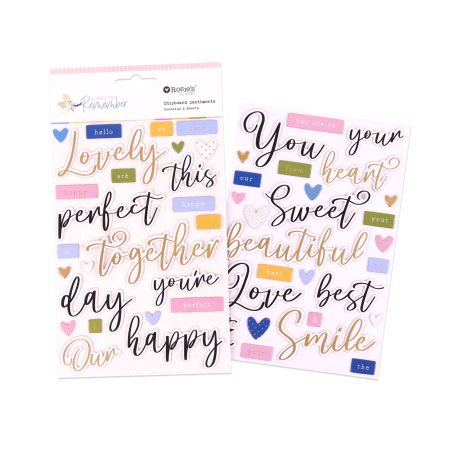 A DAY TO
Remember
ROSIE'S
STUDIO
Chipboard Sentiments
Contains 2 sheets
hello
Lovely
are
this
happy
perfect
happy
together
is
you're
day
perfect
Our
happy
you are so
You
your
from
heart
our
Sweet
your
beautiful
best
Love
best
Smile
the